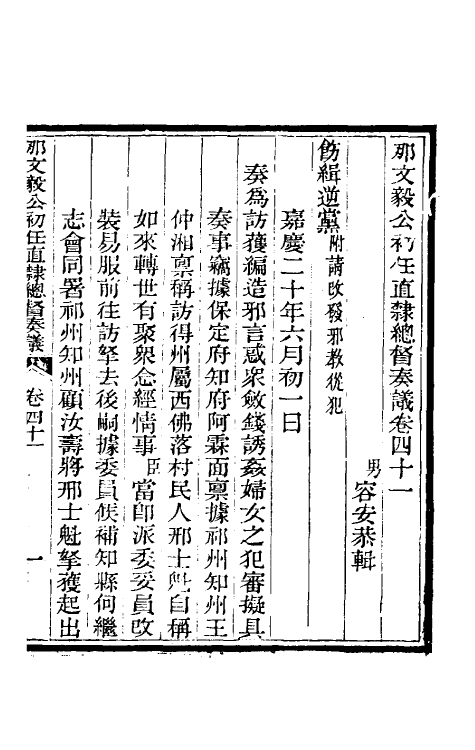 那文毅公初任直隸總督奏議卷四十一
男容安恭輯
飭緝逆黨附請改發邪教從犯
嘉慶二十年六月初一日
奏為訪獲編造邪言惑眾斂錢誘姦婦女之犯審擬具
奏事竊據保定府知府阿霖面稟據祁州知州王
仲湘稟稱訪得州屬西佛落村民人邢士魁自稱
如來轉世有聚衆念經情事臣當即派委妥員改
裝易服前往訪拏去後嗣據委員候補知縣何繼
志會同署祁州知州顧汝壽將邢士魁拏獲起出
那文毅公初任直隸總督奏議
卷四十一
一